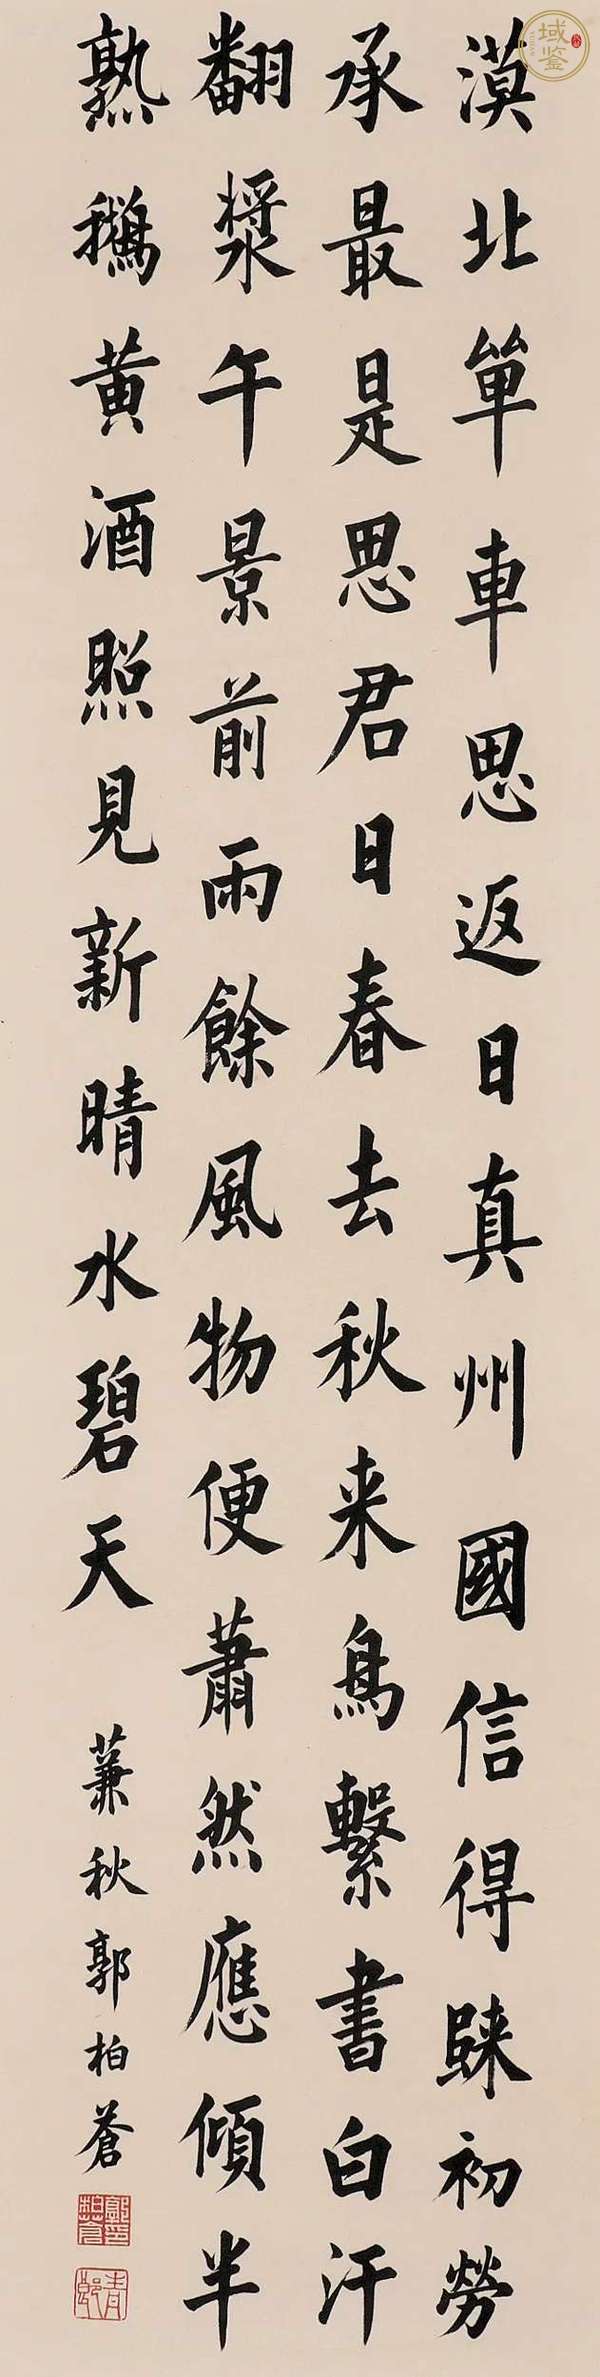 漠北單車思返日真州國信得踈初勞
承最是思君日春去秋来鳥繫書白汗
翻漿午景前雨餘風物便蕭然應傾半
熟鵝黃酒照見新晴水碧天
蒹秋郭柏蒼
郭柏蒼印
青郎
域鑒